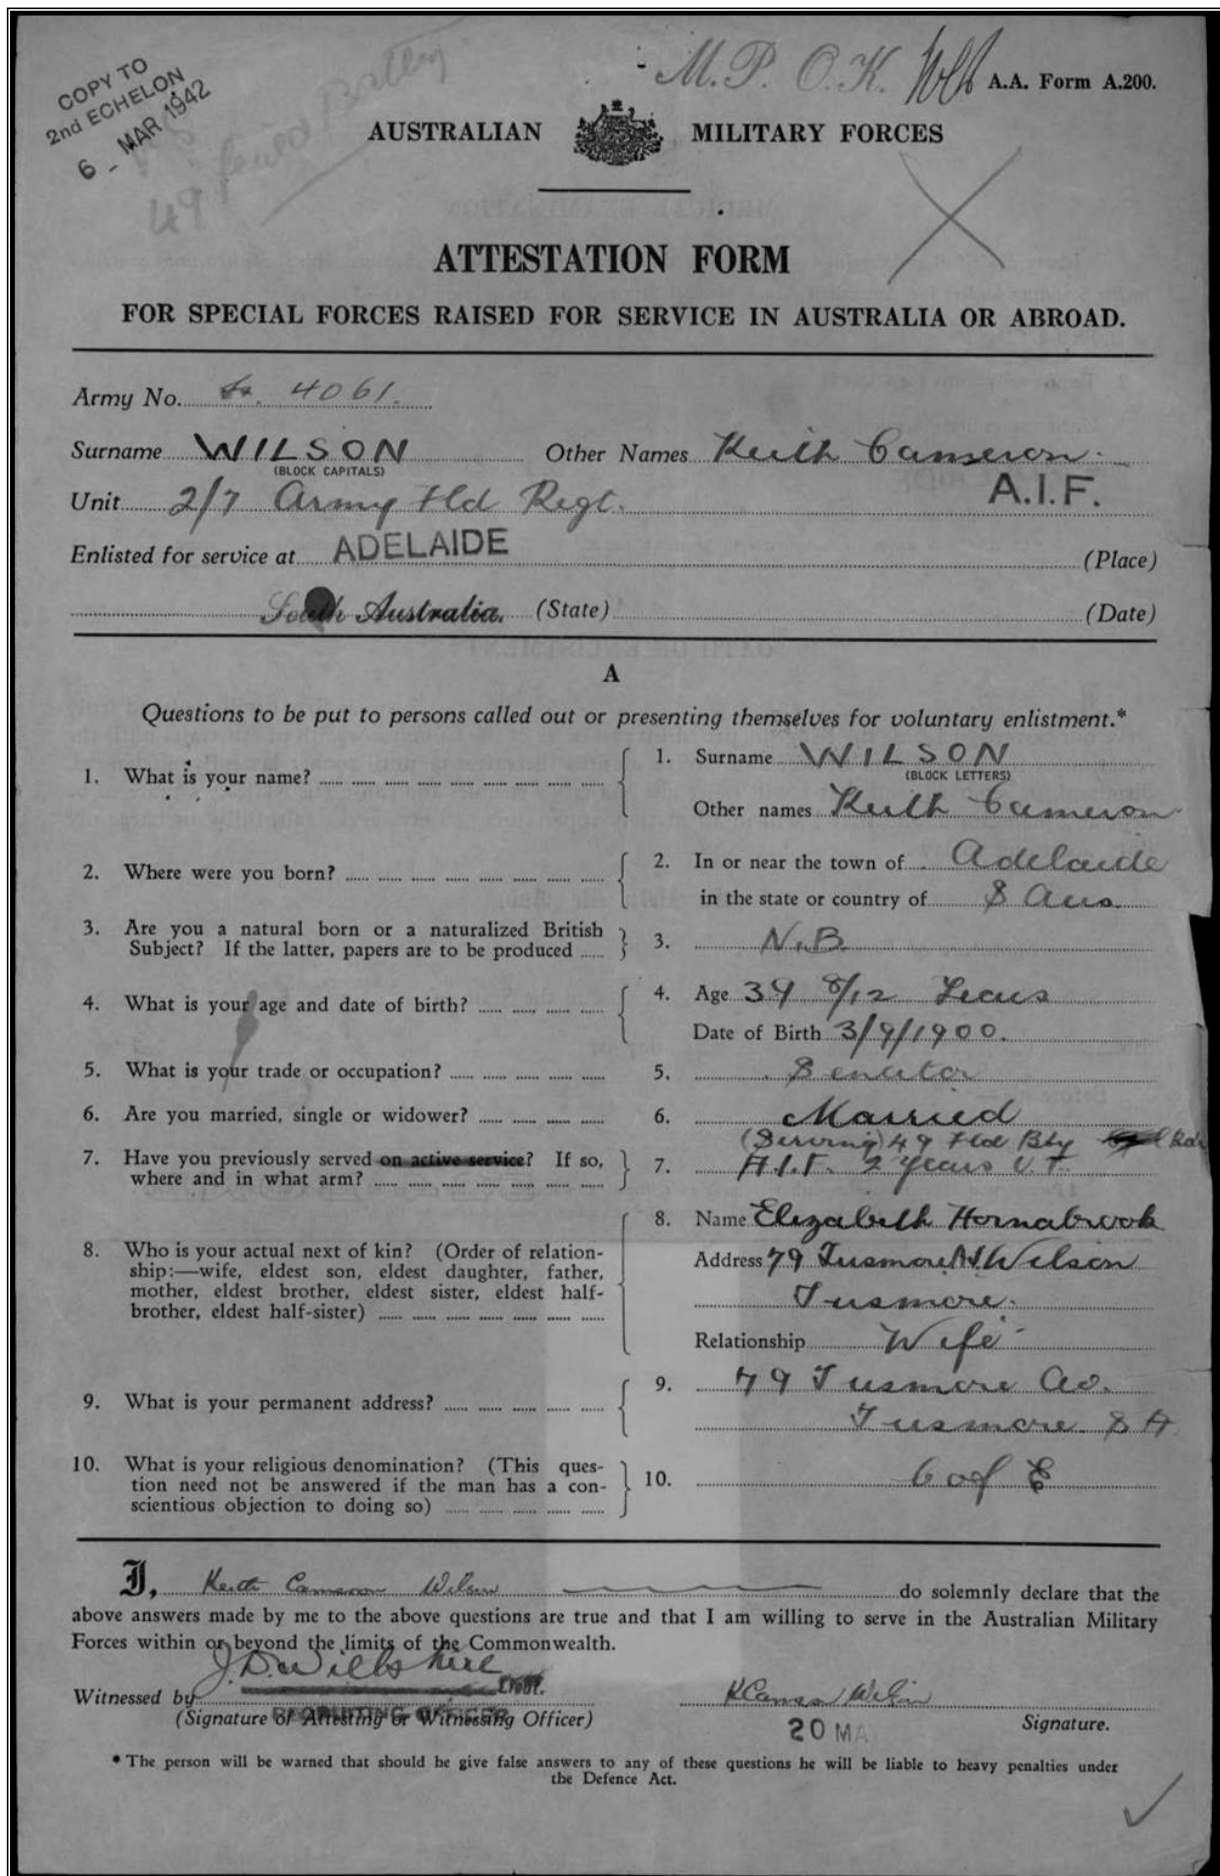 COPY TO
2nd ECHELON
6 - MAR 1942
M.P. O.K.
A.A. Form A.200.
49
AUSTRALIAN MILITARY FORCES
ATTESTATION FORM
FOR SPECIAL FORCES RAISED FOR SERVICE IN AUSTRALIA OR ABROAD.
Army No. 4061.
Surname WILSON Other Names Keith Cameron.
(BLOCK CAPITALS)
A.I.F.
Unit 2/7 Army Fld Regt.
Enlisted for service at ADELAIDE (Place)
South Australia. (State) (Date)
A
Questions to be put to persons called out or presenting themselves for voluntary enlistment.*
1. What is your name? 1. Surname WILSON
(BLOCK LETTERS)
Other names Keith Cameron
2. Where were you born? 2. In or near the town of Adelaide
in the state or country of S Aus.
3. Are you a natural born or a naturalized British
Subject? If the latter, papers are to be produced 3. N.B.
4. What is your age and date of birth? 4. Age 39 8/12 Years
Date of Birth 3/9/1900.
5. What is your trade or occupation? 5. Senator
6. Are you married, single or widower? 6. Married
(Serving) 49 Fld Bty
7. Have you previously served on active service? If so,
where and in what arm? 7. A.I.F. 2 years
8. Who is your actual next of kin? (Order of relation-
ship:—wife, eldest son, eldest daughter, father,
mother, eldest brother, eldest sister, eldest half-
brother, eldest half-sister)
8. Name Elizabeth Hornabrook
Address 79 Tusmore Av Wilson
Tusmore.
Relationship Wife
9. What is your permanent address? 9. 79 Tusmore Av.
Tusmore S A
10. What is your religious denomination? (This ques-
tion need not be answered if the man has a con-
scientious objection to doing so) 10. C of E
I, Keith Cameron Wilson do solemnly declare that the
above answers made by me to the above questions are true and that I am willing to serve in the Australian Military
Forces within or beyond the limits of the Commonwealth.
J.D. Wiltshire
Witnessed by Lieut. K Cameron Wilson
(Signature of Attesting or Witnessing Officer) Signature.
RECRUITING OFFICER
20 MA
* The person will be warned that should he give false answers to any of these questions he will be liable to heavy penalties under
the Defence Act.